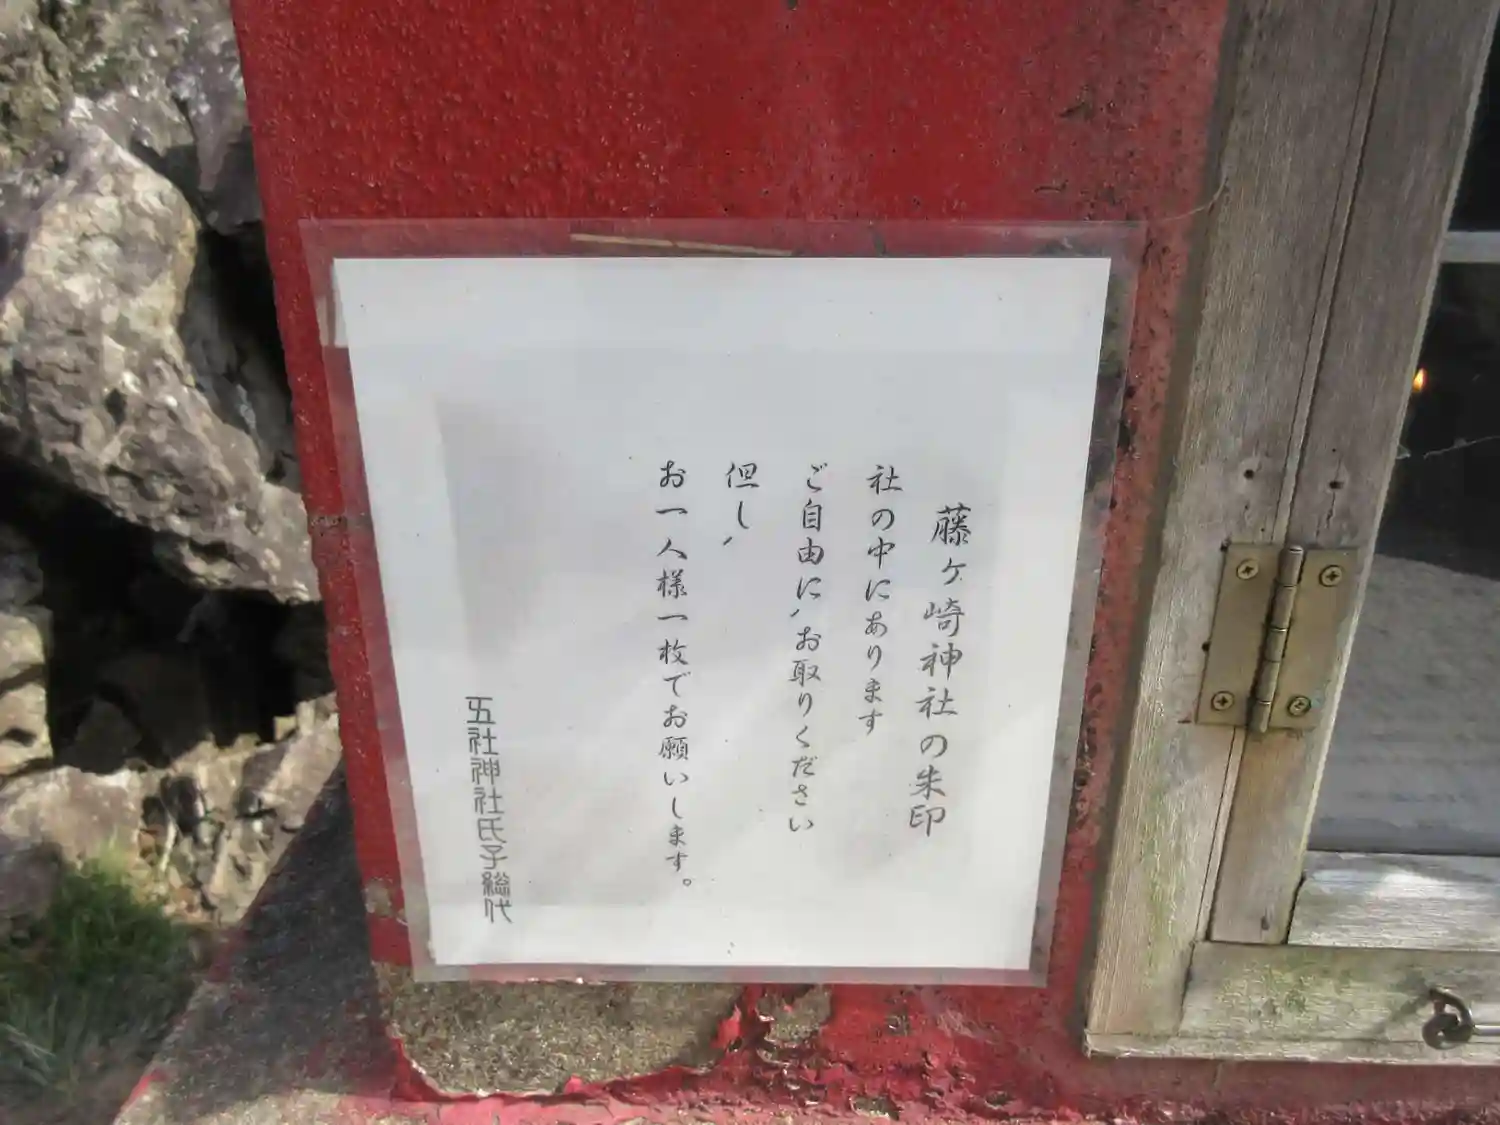 藤ヶ崎神社の朱印
社の中にあります
ご自由に、お取りください
但し、
お一人様一枚でお願いします。
五社神社氏子総代